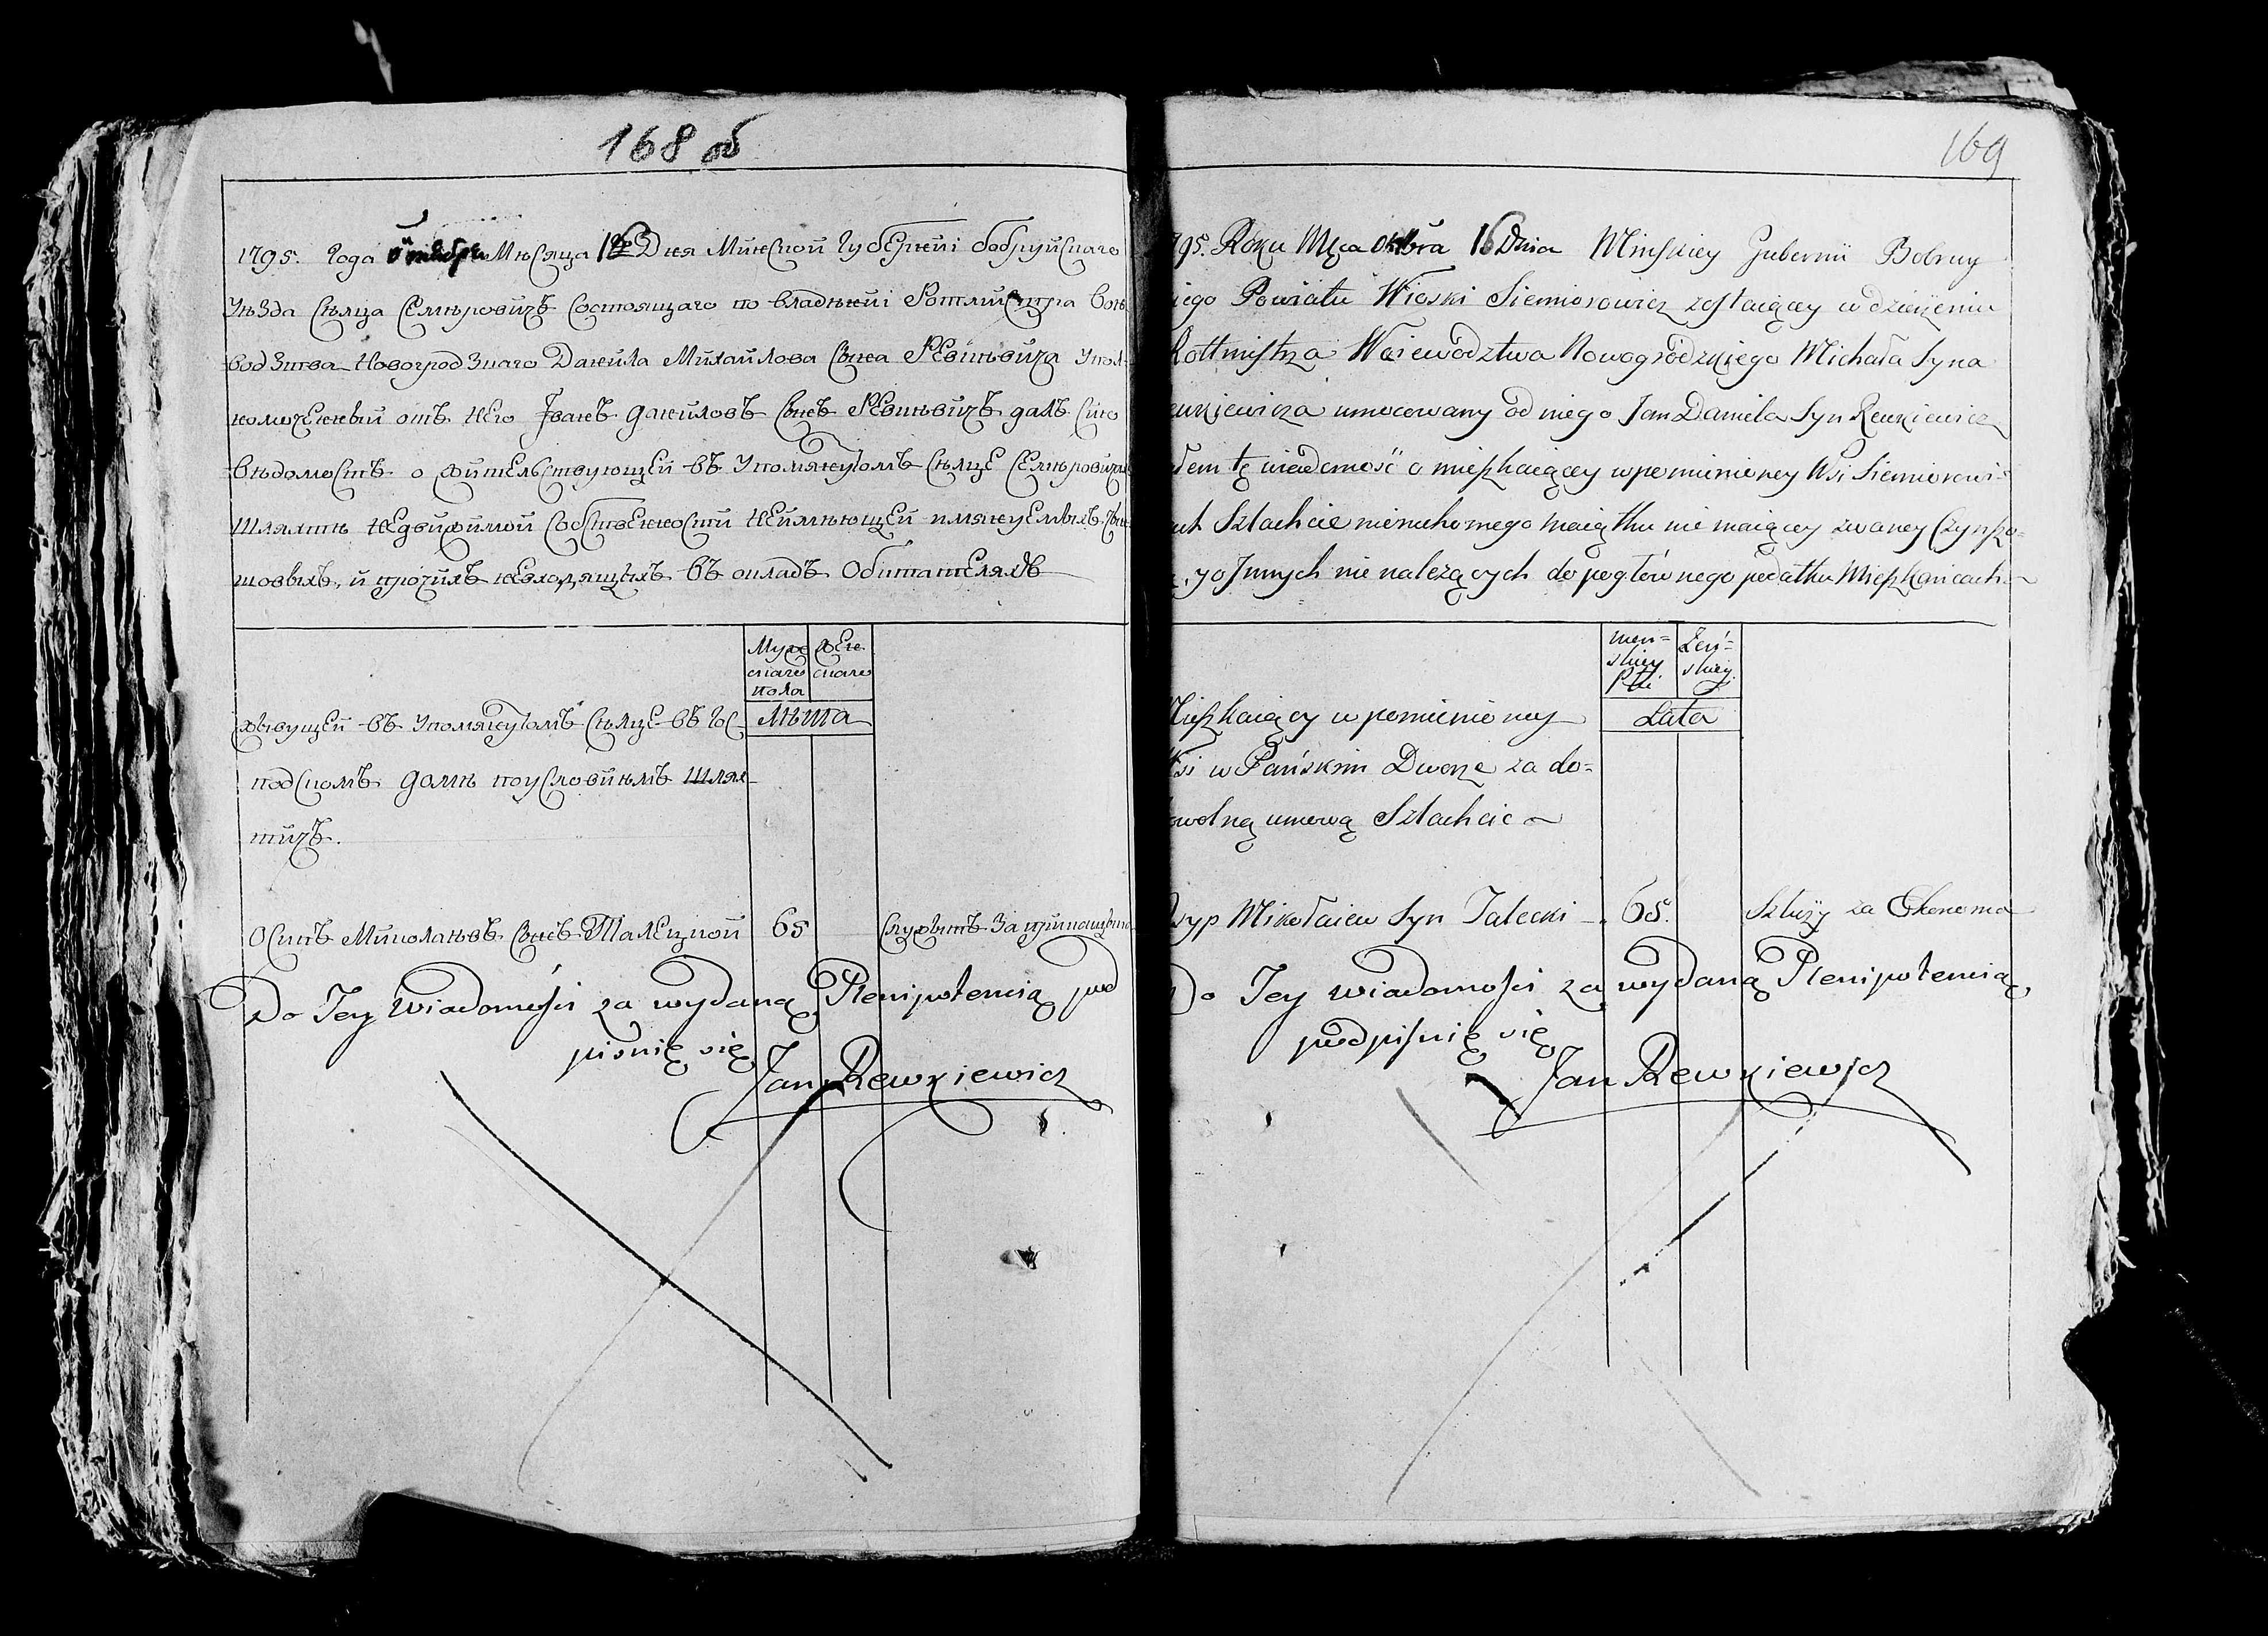 168 об
1795. Года Октября Мѣсяца 16 Дня Минской Губерніи бобруйскаго
уѣзда сѣлца Семѣровичъ состоящаго по владѣніи Ротмистра Воѣ
водзтва Новогродзкаго Данила Михайлова сына Ревкѣвича упол-
номоченный отъ него Іванъ Даниловъ сынъ Ревкѣвичъ далъ сию
вѣдомость о жительствующей въ упомянутомъ сѣлце Семѣровичи
шляхтѣ недвижимой собственности неимѣющей имянуемыхъ
шовыхъ, и прочихъ невходящихъ въ окладъ обитателяхъ
Муже
скаго
пола
Жен
скаго
Лѣта
живущей въ упомянутомъ сѣлце въ гос
подскомъ домѣ по условиямъ шлях
тичъ.
Осипъ Миколаѣвъ сынъ Талецкой 65 служитъ за
Do Tey Wiadomości za wydaną Plenipotencią pod
pisuię się
Jan Rewkiewicz
169
795. Roku Mca Oktobra 16 Dnia Minskiey Gubernii Bobruy
iego Powiatu Wioski Siemiorowicz zostaiącey w dzierzeniu
Rottmistrza Woiewództwa Nowogródzkiego Michała Syna
ewkiewicza umocowany od niego Jan Daniela Syn Rewkiewicz
ałem tę wiadomość o mieszkaiącey wpomienioney Wsi Siemiorowi-
ach Szlachcie nieruchomego maiątku nie maiącey zwaney Czynszo-
y o Innych nie należących do pogłównego podatku Mieszkańcach
Męz-
kiey
Płci
Żeń-
skiey
Lata
Mieszkaiący w pomienioney
Wsi w Pańskim Dworze za do-
owolną umową Szlachcic
zyp Mikołaiew Syn Talecki 65. Służy za Ekonoma
Do Tey wiadomości za wydaną Plenipotencią
podpisuię się
Jan Rewkiewicz